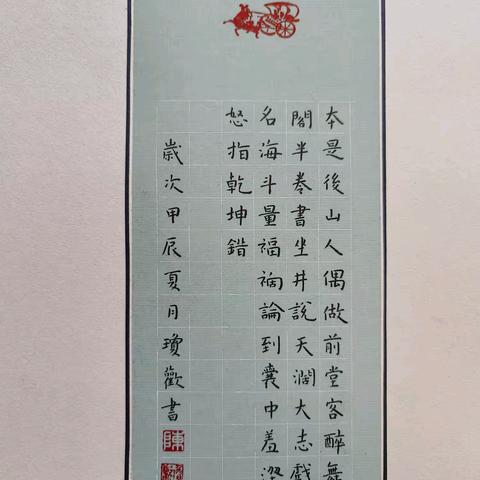 本是後山人偶做前堂客醉舞
閣半卷書坐井說天濶大志戲
名海斗量福禍論到囊中羞澀
怒指乾坤錯
歲次甲辰夏月瓊歡書
陳